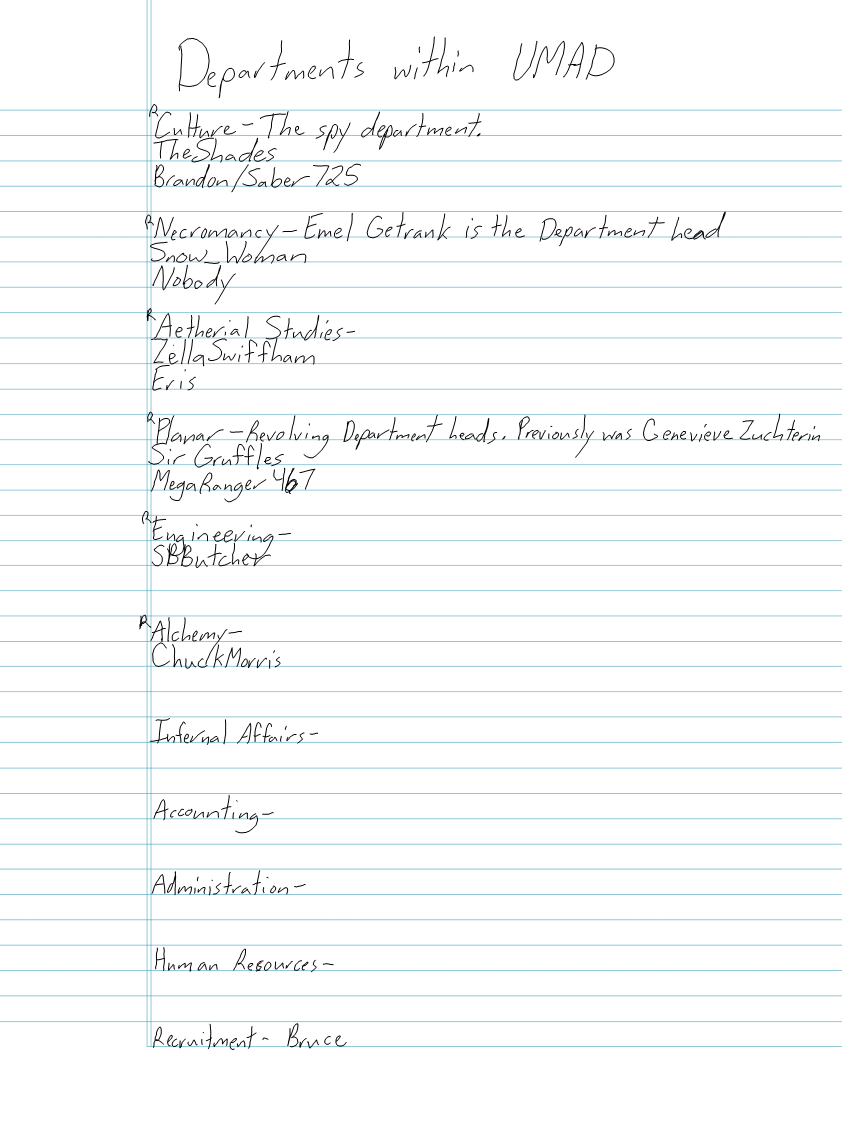 Departments within UMAD
R Culture - The spy department.
TheShades
Brandon/Saber725
R Necromancy - Emel Getrank is the Department head
Snow_Woman
Nobody
R Aetherial Studies-
ZellaSwiffham
Eris
R Planar - Revolving Department heads. Previously was Genevieve Zuchterin
Sir Gruffles
MegaRanger467
R Engineering-
SBButcher
R Alchemy-
ChuckMorris
Internal Affairs-
Accounting-
Administration-
Human Resources-
Recruitment- Bruce